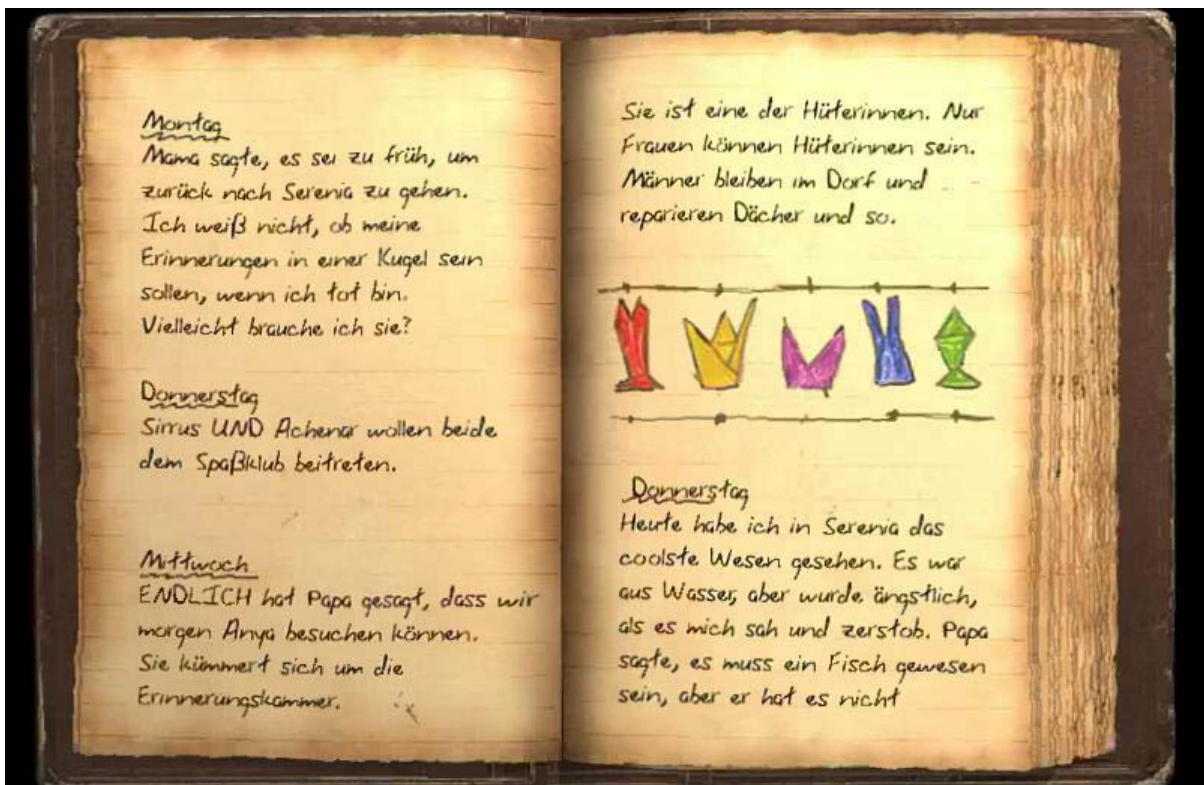 Montag
Mama sagte, es sei zu früh, um
zurück nach Serenia zu gehen.
Ich weiß nicht, ob meine
Erinnerungen in einer Kugel sein
sollen, wenn ich tot bin.
Vielleicht brauche ich sie?
Donnerstag
Sirrus UND Achenar wollen beide
dem Spaßklub beitreten.
Mittwoch
ENDLICH hat Papa gesagt, dass wir
morgen Anya besuchen können.
Sie kümmert sich um die
Erinnerungskammer.
Sie ist eine der Hüterinnen. Nur
Frauen können Hüterinnen sein.
Männer bleiben im Dorf und
reparieren Dächer und so.
Donnerstag
Heute habe ich in Serenia das
coolste Wesen gesehen. Es war
aus Wasser, aber wurde ängstlich,
als es mich sah und zerstob. Papa
sagte, es muss ein Fisch gewesen
sein, aber er hat es nicht